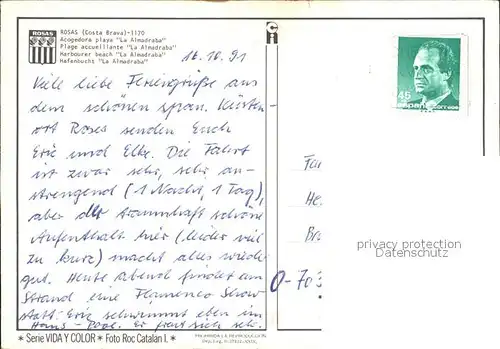 ROSAS
ROSAS (Costa Brava)-1170
Acogedora playa "La Almadraba"
Plage accueillante "La Almadraba"
Harbourer beach "La Almadraba"
Hafenbucht "La Almadraba"
16.10.91
Viele liebe Feriengrüße aus
dem schönen span. Küsten-
ort Roses senden Euch
Eric und Elke. Die Fahrt
ist zwar sehr, sehr an-
strengend (1 Nacht, 1 Tag),
aber der traumhaft schöne
Aufenthalt hier (leider viel
zu kurz) macht alles wieder
gut. Heute abend findet am
Strand eine Flamenco Show
statt. Eric schwimmt eben im
Haus-Pool. Er freut sich sehr.
* Serie VIDA Y COLOR * Foto Roc Catalán I. *
PROHIBIDA LA REPRODUCCION
45
España
CORREOS
Fa
He
Br
D-703
privacy protection
Datenschutz